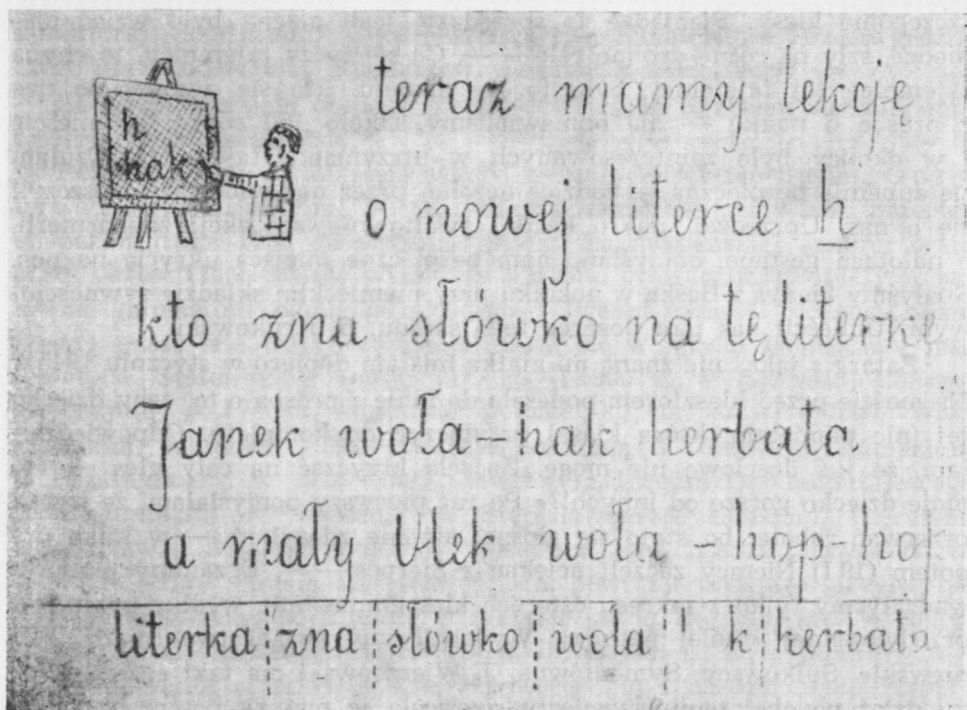 h
hak
teraz mamy lekcje
o nowej literce h
kto zna słówko na tę literkę
Janek woła – hak herbata
a mały Olek woła – hop – ho
literka zna słówko woła herbata